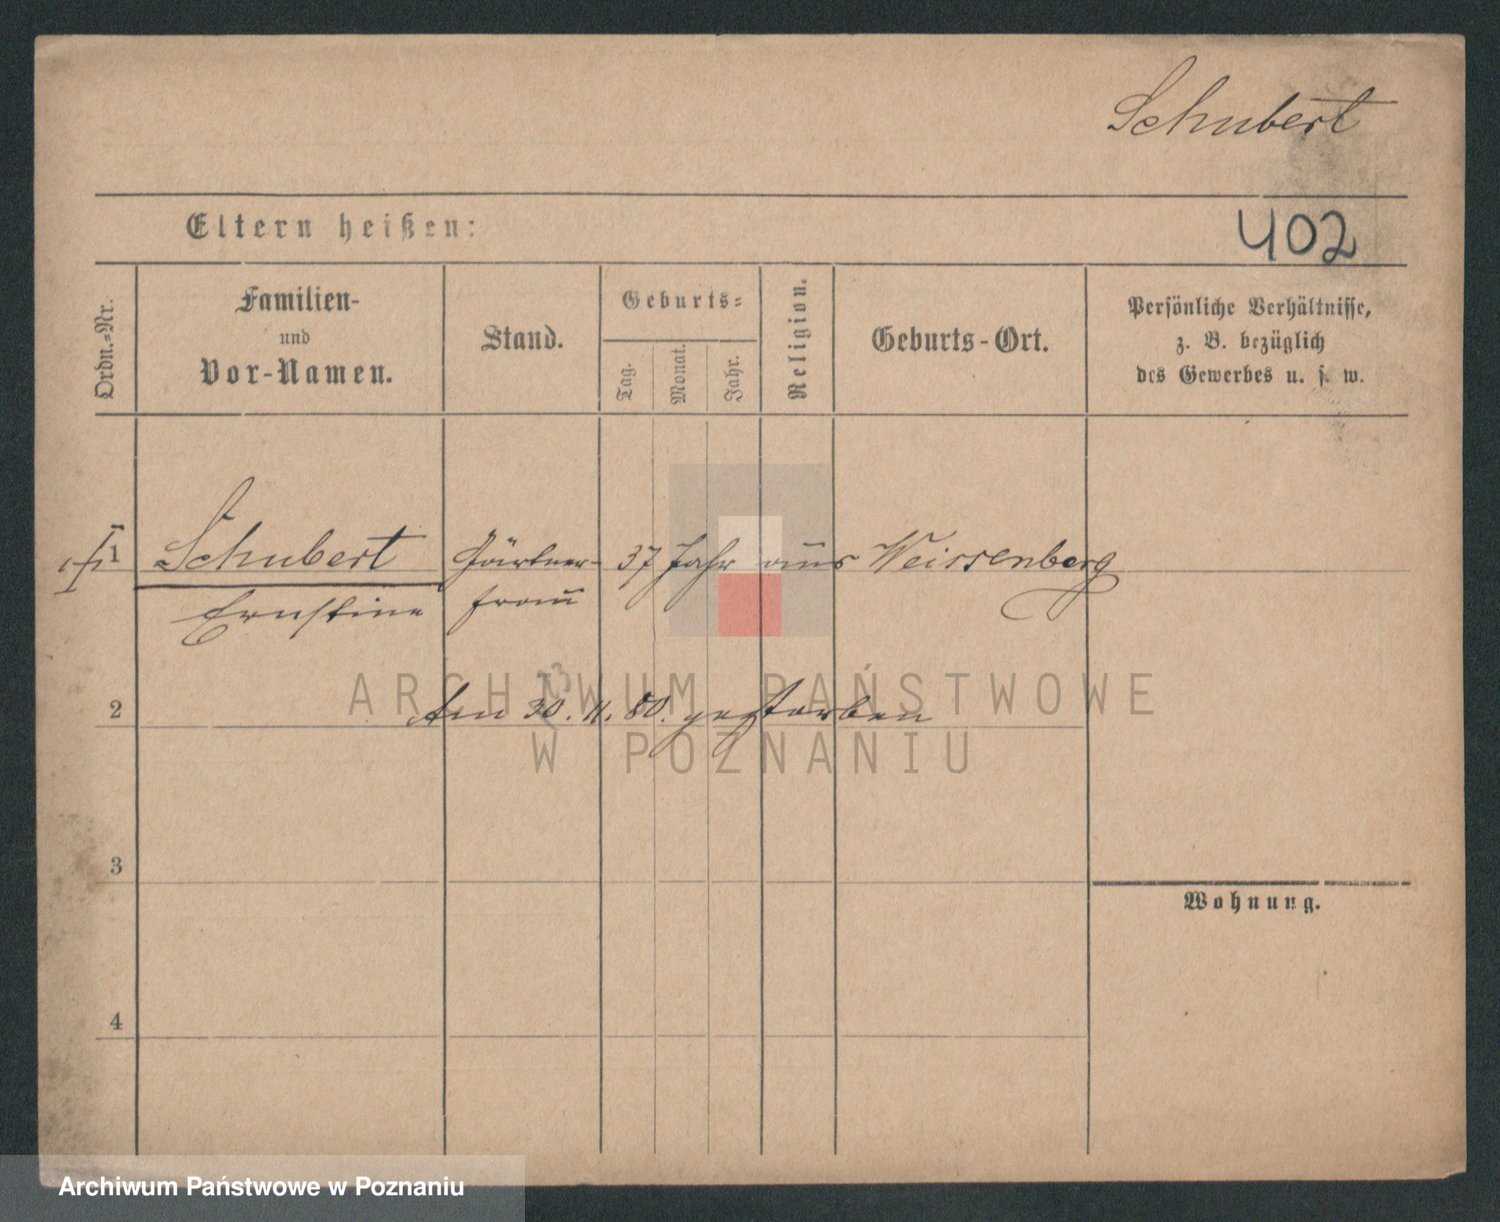 Schubert
Eltern heißen:
402
Ordn.-Nr.
Familien-
und
Vor-Namen.
Stand.
Geburts-
Tag.
Monat.
Jahr.
Religion.
Geburts-Ort.
Persönliche Verhältnisse,
z. B. bezüglich
des Gewerbes u. s. w.
1 Schubert Gärtner- 37 Jahr aus Weissenberg
Ernstine frau
ARCHIWUM PAŃSTWOWE
2 Am 30. 11. 80. gestorben
W POZNANIU
3
Wohnung.
4
Archiwum Państwowe w Poznaniu